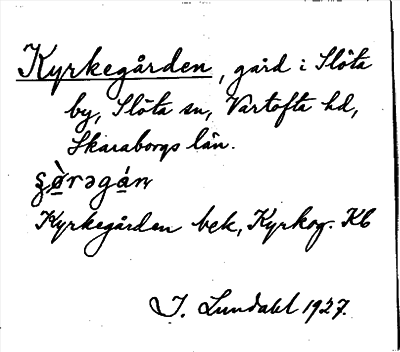 Kyrkegården, gård i Slöta
by, Slöta sn, Vartofta hd,
Skaraborgs län.
Kyrkegården bek, Kyrkog. Kb
I. Lundahl 1927.